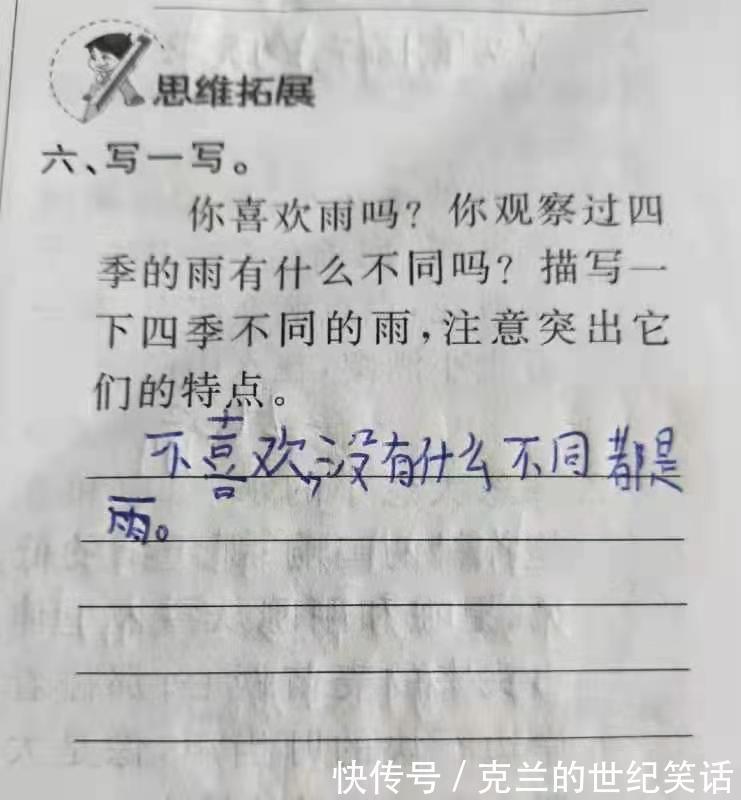 思维拓展
六、写一写。
你喜欢雨吗？你观察过四
季的雨有什么不同吗？描写一
下四季不同的雨，注意突出它
们的特点。
不喜欢，没有什么不同都是
雨。
快传号/克兰的世纪笑话